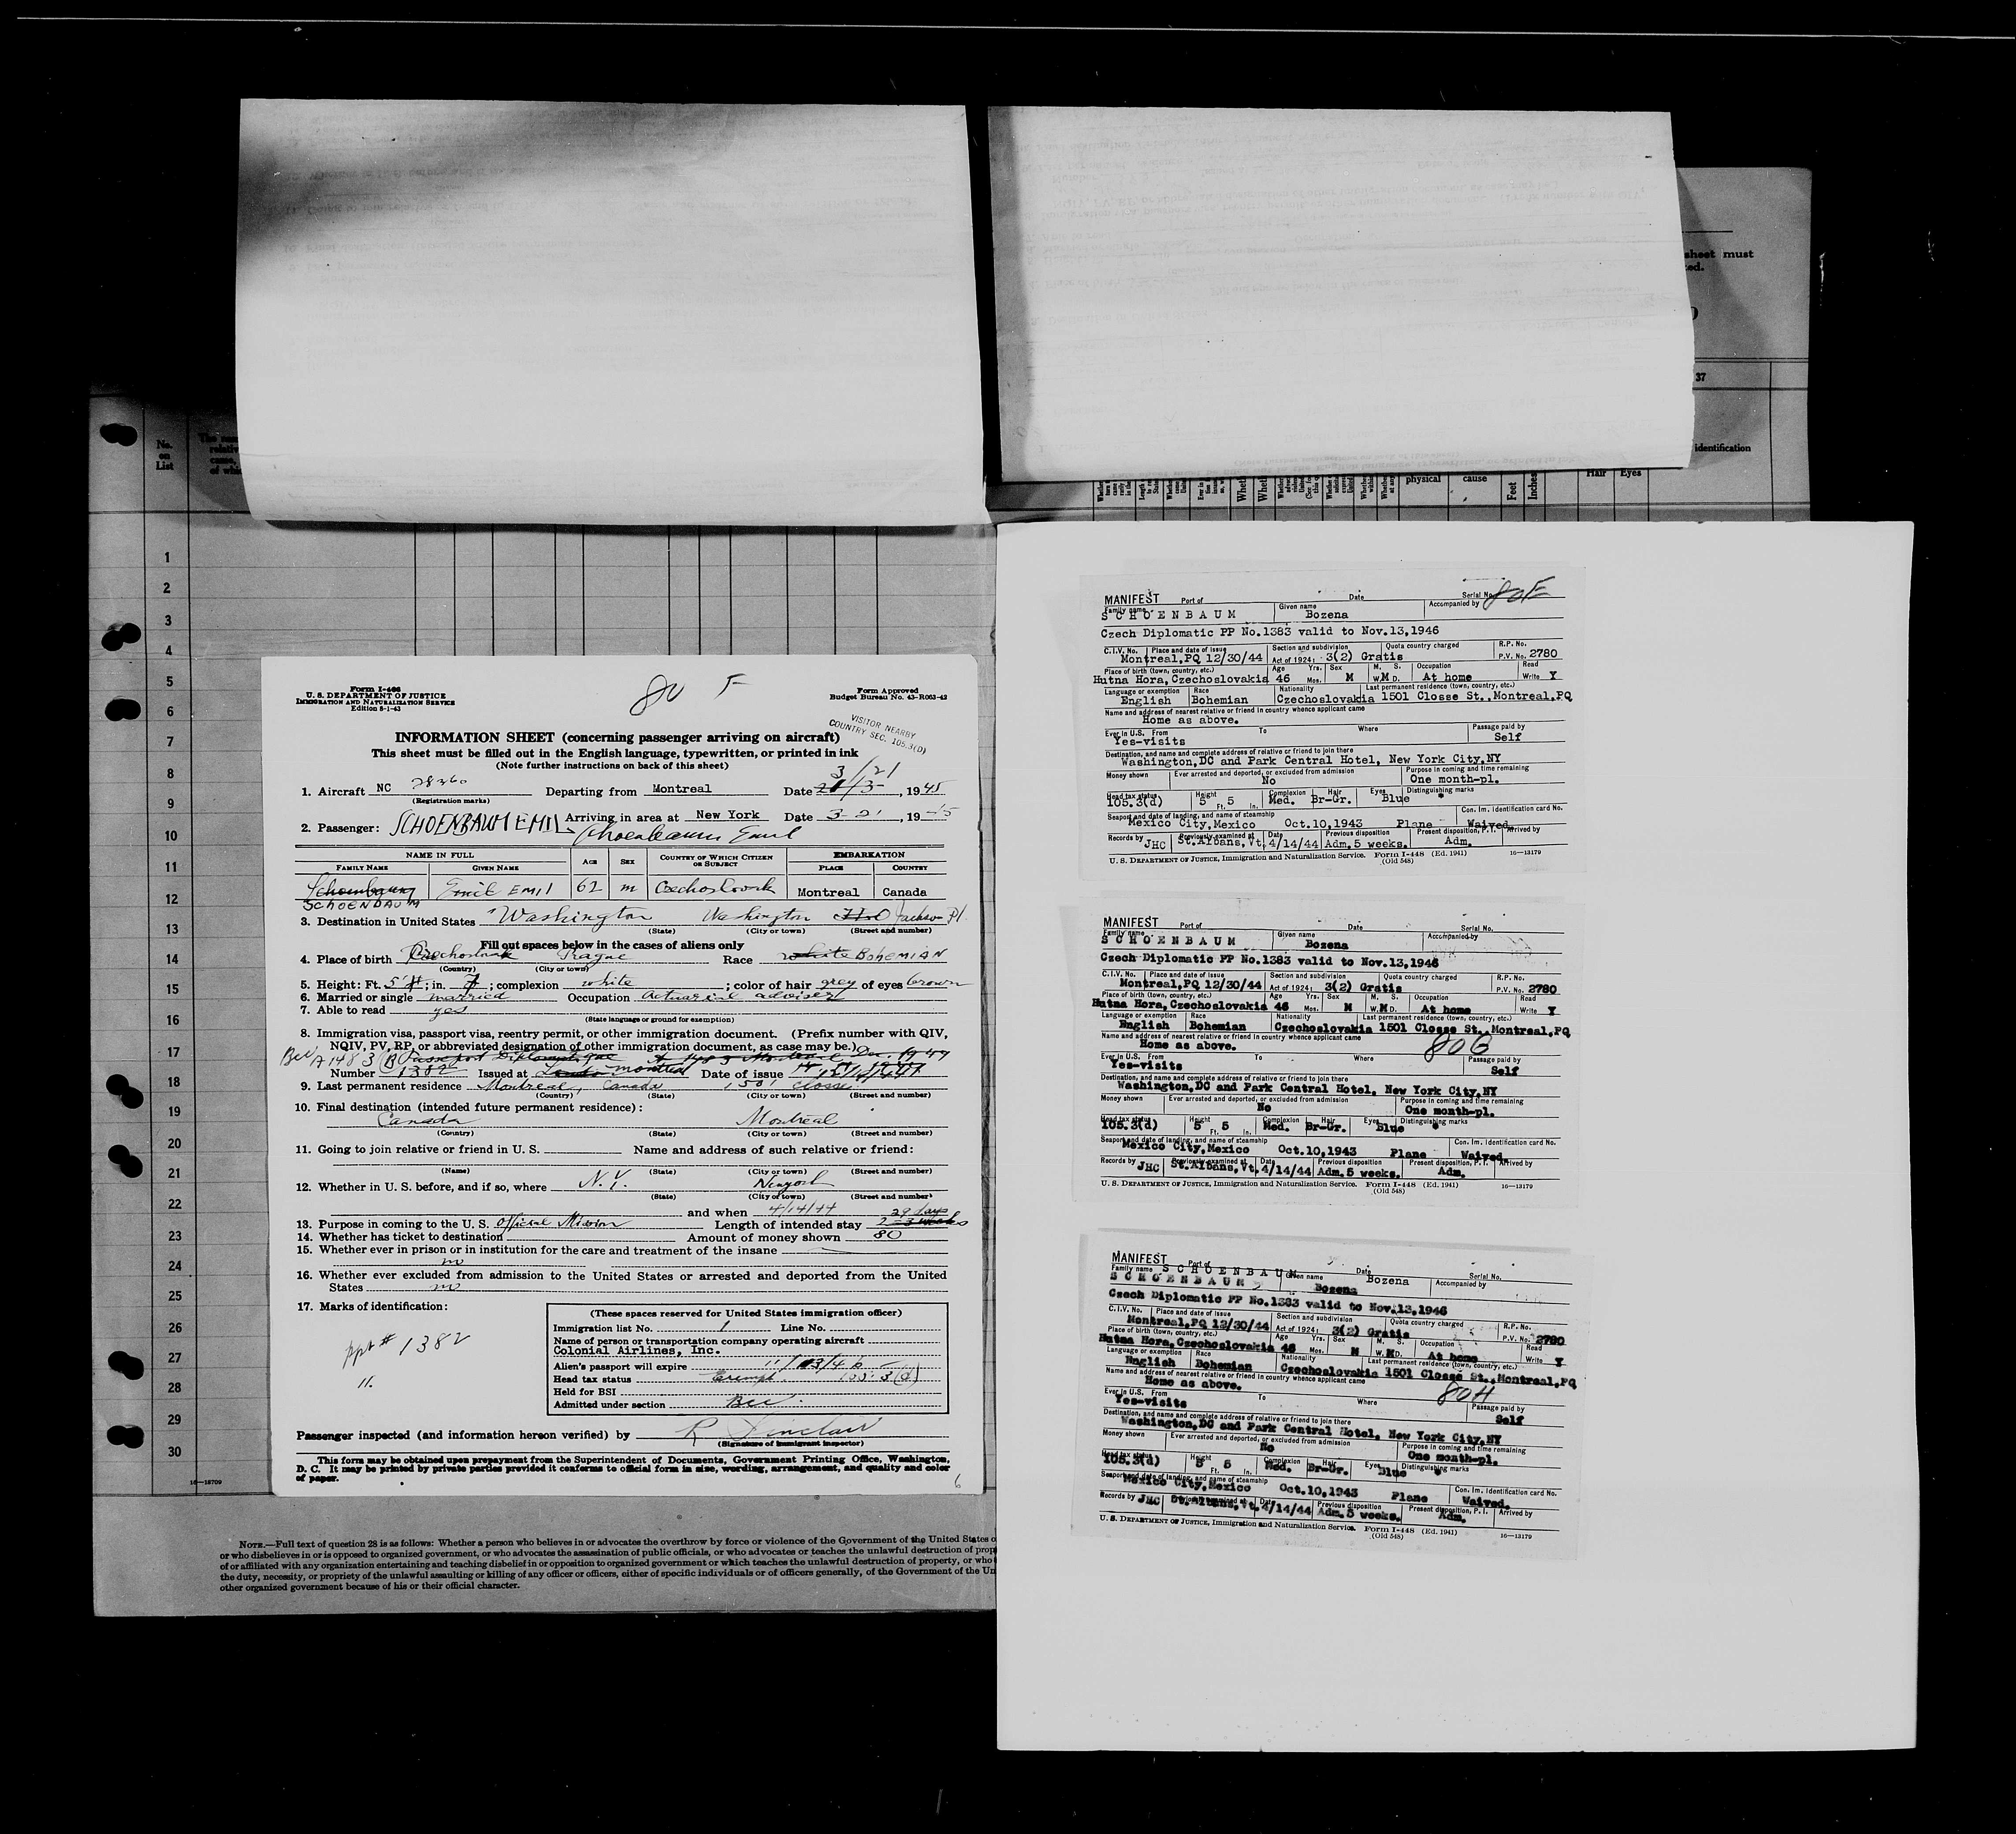 sheet must
37
No.
on
List
identification
Hair Eyes
physical cause
Feet
Inches
1
2
3
4
5
6
7
8
9
10
11
12
13
14
15
16
17
18
19
20
21
22
23
24
25
26
27
28
29
30
16—18709
Form I-466
U. S. DEPARTMENT OF JUSTICE
IMMIGRATION AND NATURALIZATION SERVICE
Edition 5-1-43
80 F
Form Approved
Budget Bureau No. 43-R063-42
VISITOR NEARBY
COUNTRY SEC. 105.3(D)
INFORMATION SHEET (concerning passenger arriving on aircraft)
This sheet must be filled out in the English language, typewritten, or printed in ink
(Note further instructions on back of this sheet)
3/21
1. Aircraft NC 28360 Departing from Montreal Date 21/3, 1945
(Registration marks)
Arriving in area at New York Date 3-21, 19-45
2. Passenger: SCHOENBAUM EMIL Schoenbaum Emil
NAME IN FULL AGE SEX COUNTRY OF WHICH CITIZEN OR SUBJECT EMBARKATION
FAMILY NAME GIVEN NAME PLACE COUNTRY
Schoenbaum Emil EMIL 62 m Czechoslovak Montreal Canada
SCHOENBAUM
3. Destination in United States Washington Washington Jackson Pl.
(State) (City or town) (Street and number)
Fill out spaces below in the cases of aliens only
4. Place of birth Czechoslovak Prague Race white BOHEMIAN
(Country) (City or town)
5. Height: Ft. 5; in. 7; complexion white; color of hair grey of eyes brown
6. Married or single married Occupation Actuarial adviser
7. Able to read yes
(State language or ground for exemption)
8. Immigration visa, passport visa, reentry permit, or other immigration document. (Prefix number with QIV,
NQIV, PV, RP, or abbreviated designation of other immigration document, as case may be.)
A 1483 Passeport Diplomatique A 1483 Montreal Dec. 1944
Number 1382 Issued at Montreal Date of issue
9. Last permanent residence Montreal, Canada 1501 Closse
(Country) (State) (City or town) (Street and number)
10. Final destination (intended future permanent residence):
Canada Montreal
(Country) (State) (City or town) (Street and number)
11. Going to join relative or friend in U. S. Name and address of such relative or friend:
(Name) (State) (City or town) (Street and number)
12. Whether in U. S. before, and if so, where N.Y. Newyork
(State) (City or town) (Street and number)
and when 4/14/44 29 days
13. Purpose in coming to the U. S. Official Mission Length of intended stay 2-3 weeks
14. Whether has ticket to destination Amount of money shown 80
15. Whether ever in prison or in institution for the care and treatment of the insane
no
16. Whether ever excluded from admission to the United States or arrested and deported from the United
States no
17. Marks of identification:
ppt # 1382
11.
(These spaces reserved for United States immigration officer)
Immigration list No. 1 Line No.
Name of person or transportation company operating aircraft
Colonial Airlines, Inc.
Alien's passport will expire 11/13/46
Head tax status Exempt 105.3(d)
Held for BSI
Admitted under section
Passenger inspected (and information hereon verified) by R Sinclair
(Signature of immigrant inspector)
This form may be obtained upon prepayment from the Superintendent of Documents, Government Printing Office, Washington,
D. C. It may be printed by private parties provided it conforms to official form in size, wording, arrangement, and quality and color
of paper.
6
NOTE.—Full text of question 28 is as follows: Whether a person who believes in or advocates the overthrow by force or violence of the Government of the United States o
or who disbelieves in or is opposed to organized government, or who advocates the assassination of public officials, or who advocates or teaches the unlawful destruction of prop
of or affiliated with any organization entertaining and teaching disbelief in or opposition to organized government or which teaches the unlawful destruction of property, or who
the duty, necessity, or propriety of the unlawful assaulting or killing of any officer or officers, either of specific individuals or of officers generally, of the Government of the Un
other organized government because of his or their official character.
MANIFEST Port of Date Serial No. 80F
Family name SCHOENBAUM Given name Bozena Accompanied by
Czech Diplomatic PP No.1383 valid to Nov.13,1946
C.I.V. No. Place and date of issue Section and subdivision Quota country charged R.P. No.
Montreal,PQ 12/30/44 Act of 1924: 3(2) Gratis P.V. No. 2780
Place of birth (town, country, etc.) Age Yrs. Sex M. S. Occupation Read
Hutna Hora, Czechoslovakia 46 Mos. M W.MD. At home Write Y
Language or exemption Race Nationality Last permanent residence (town, country, etc.)
English Bohemian Czechoslovakia 1501 Closse St., Montreal,PQ
Name and address of nearest relative or friend in country whence applicant came
Home as above.
Ever in U.S. From To Where Passage paid by
Yes-visits Self
Destination, and name and complete address of relative or friend to join there
Washington,DC and Park Central Hotel, New York City,NY
Money shown Ever arrested and deported, or excluded from admission Purpose in coming and time remaining
No One month-pl.
Head tax status Height Complexion Hair Eyes Distinguishing marks
105.3(d) 5 Ft. 5 In. Med. Br-Gr. Blue *
Seaport and date of landing, and name of steamship Con. Im. Identification card No.
Mexico City,Mexico Oct.10,1943 Plane Waived
Records by Previously examined at Date Previous disposition Present disposition, P. I. Arrived by
JHC St.Albans,Vt. 4/14/44 Adm.5 weeks. Adm.
U. S. DEPARTMENT OF JUSTICE, Immigration and Naturalization Service. Form I-448 (Ed. 1941) 16—13179
(Old 548)
MANIFEST Port of Date Serial No.
Family name SCHOENBAUM Given name Bozena Accompanied by
Czech Diplomatic PP No.1383 valid to Nov.13,1946
C.I.V. No. Place and date of issue Section and subdivision Quota country charged R.P. No.
Montreal,PQ 12/30/44 Act of 1924: 3(2) Gratis P.V. No. 2780
Place of birth (town, country, etc.) Age Yrs. Sex M. S. Occupation Read
Hutna Hora, Czechoslovakia 46 Mos. M W.MD. At home Write Y
Language or exemption Race Nationality Last permanent residence (town, country, etc.)
English Bohemian Czechoslovakia 1501 Closse St., Montreal,PQ
Name and address of nearest relative or friend in country whence applicant came
Home as above. 80G
Ever in U.S. From To Where Passage paid by
Yes-visits Self
Destination, and name and complete address of relative or friend to join there
Washington,DC and Park Central Hotel, New York City,NY
Money shown Ever arrested and deported, or excluded from admission Purpose in coming and time remaining
No One month-pl.
Head tax status Height Complexion Hair Eyes Distinguishing marks
105.3(d) 5 Ft. 5 In. Med. Br-Gr. Blue *
Seaport and date of landing, and name of steamship Con. Im. Identification card No.
Mexico City,Mexico Oct.10,1943 Plane Waived
Records by Previously examined at Date Previous disposition Present disposition, P. I. Arrived by
JHC St.Albans,Vt. 4/14/44 Adm.5 weeks. Adm.
U. S. DEPARTMENT OF JUSTICE, Immigration and Naturalization Service. Form I-448 (Ed. 1941) 16—13179
(Old 548)
MANIFEST Port of Date Serial No.
Family name SCHOENBAUM Given name Bozena Accompanied by
SCHOENBAUM Bozena
Czech Diplomatic PP No.1383 valid to Nov.13,1946
C.I.V. No. Place and date of issue Section and subdivision Quota country charged R.P. No.
Montreal,PQ 12/30/44 Act of 1924: 3(2) Gratis P.V. No. 2780
Place of birth (town, country, etc.) Age Yrs. Sex M. S. Occupation Read
Hutna Hora, Czechoslovakia 46 Mos. M W.MD. At home Write Y
Language or exemption Race Nationality Last permanent residence (town, country, etc.)
English Bohemian Czechoslovakia 1501 Closse St., Montreal,PQ
Name and address of nearest relative or friend in country whence applicant came
Home as above. 80H
Ever in U.S. From To Where Passage paid by
Yes-visits Self
Destination, and name and complete address of relative or friend to join there
Washington,DC and Park Central Hotel, New York City,NY
Money shown Ever arrested and deported, or excluded from admission Purpose in coming and time remaining
No One month-pl.
Head tax status Height Complexion Hair Eyes Distinguishing marks
105.3(d) 5 Ft. 5 In. Med. Br-Gr. Blue *
Seaport and date of landing, and name of steamship Con. Im. Identification card No.
Mexico City,Mexico Oct.10,1943 Plane Waived.
Records by Previously examined at Date Previous disposition Present disposition, P. I. Arrived by
JHC St.Albans,Vt. 4/14/44 Adm.5 weeks. Adm.
U. S. DEPARTMENT OF JUSTICE, Immigration and Naturalization Service. Form I-448 (Ed. 1941) 16—13179
(Old 548)